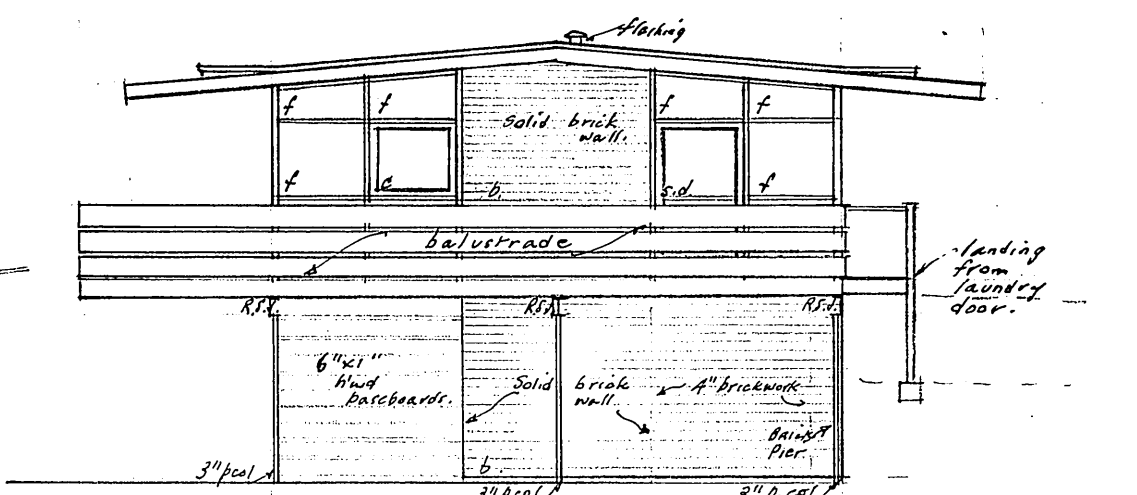 flashing
f
f
f
f
Solid brick
wall.
f
c
b.
s.d.
f
balustrade
landing
from
laundry
door.
R.S.J.
R.S.J.
R.S.J.
6"x1"
h'wd
baseboards.
Solid
brick
wall
4" brickwork
Brick
Pier
b.
3"pcol
3"pcol
3"p.col